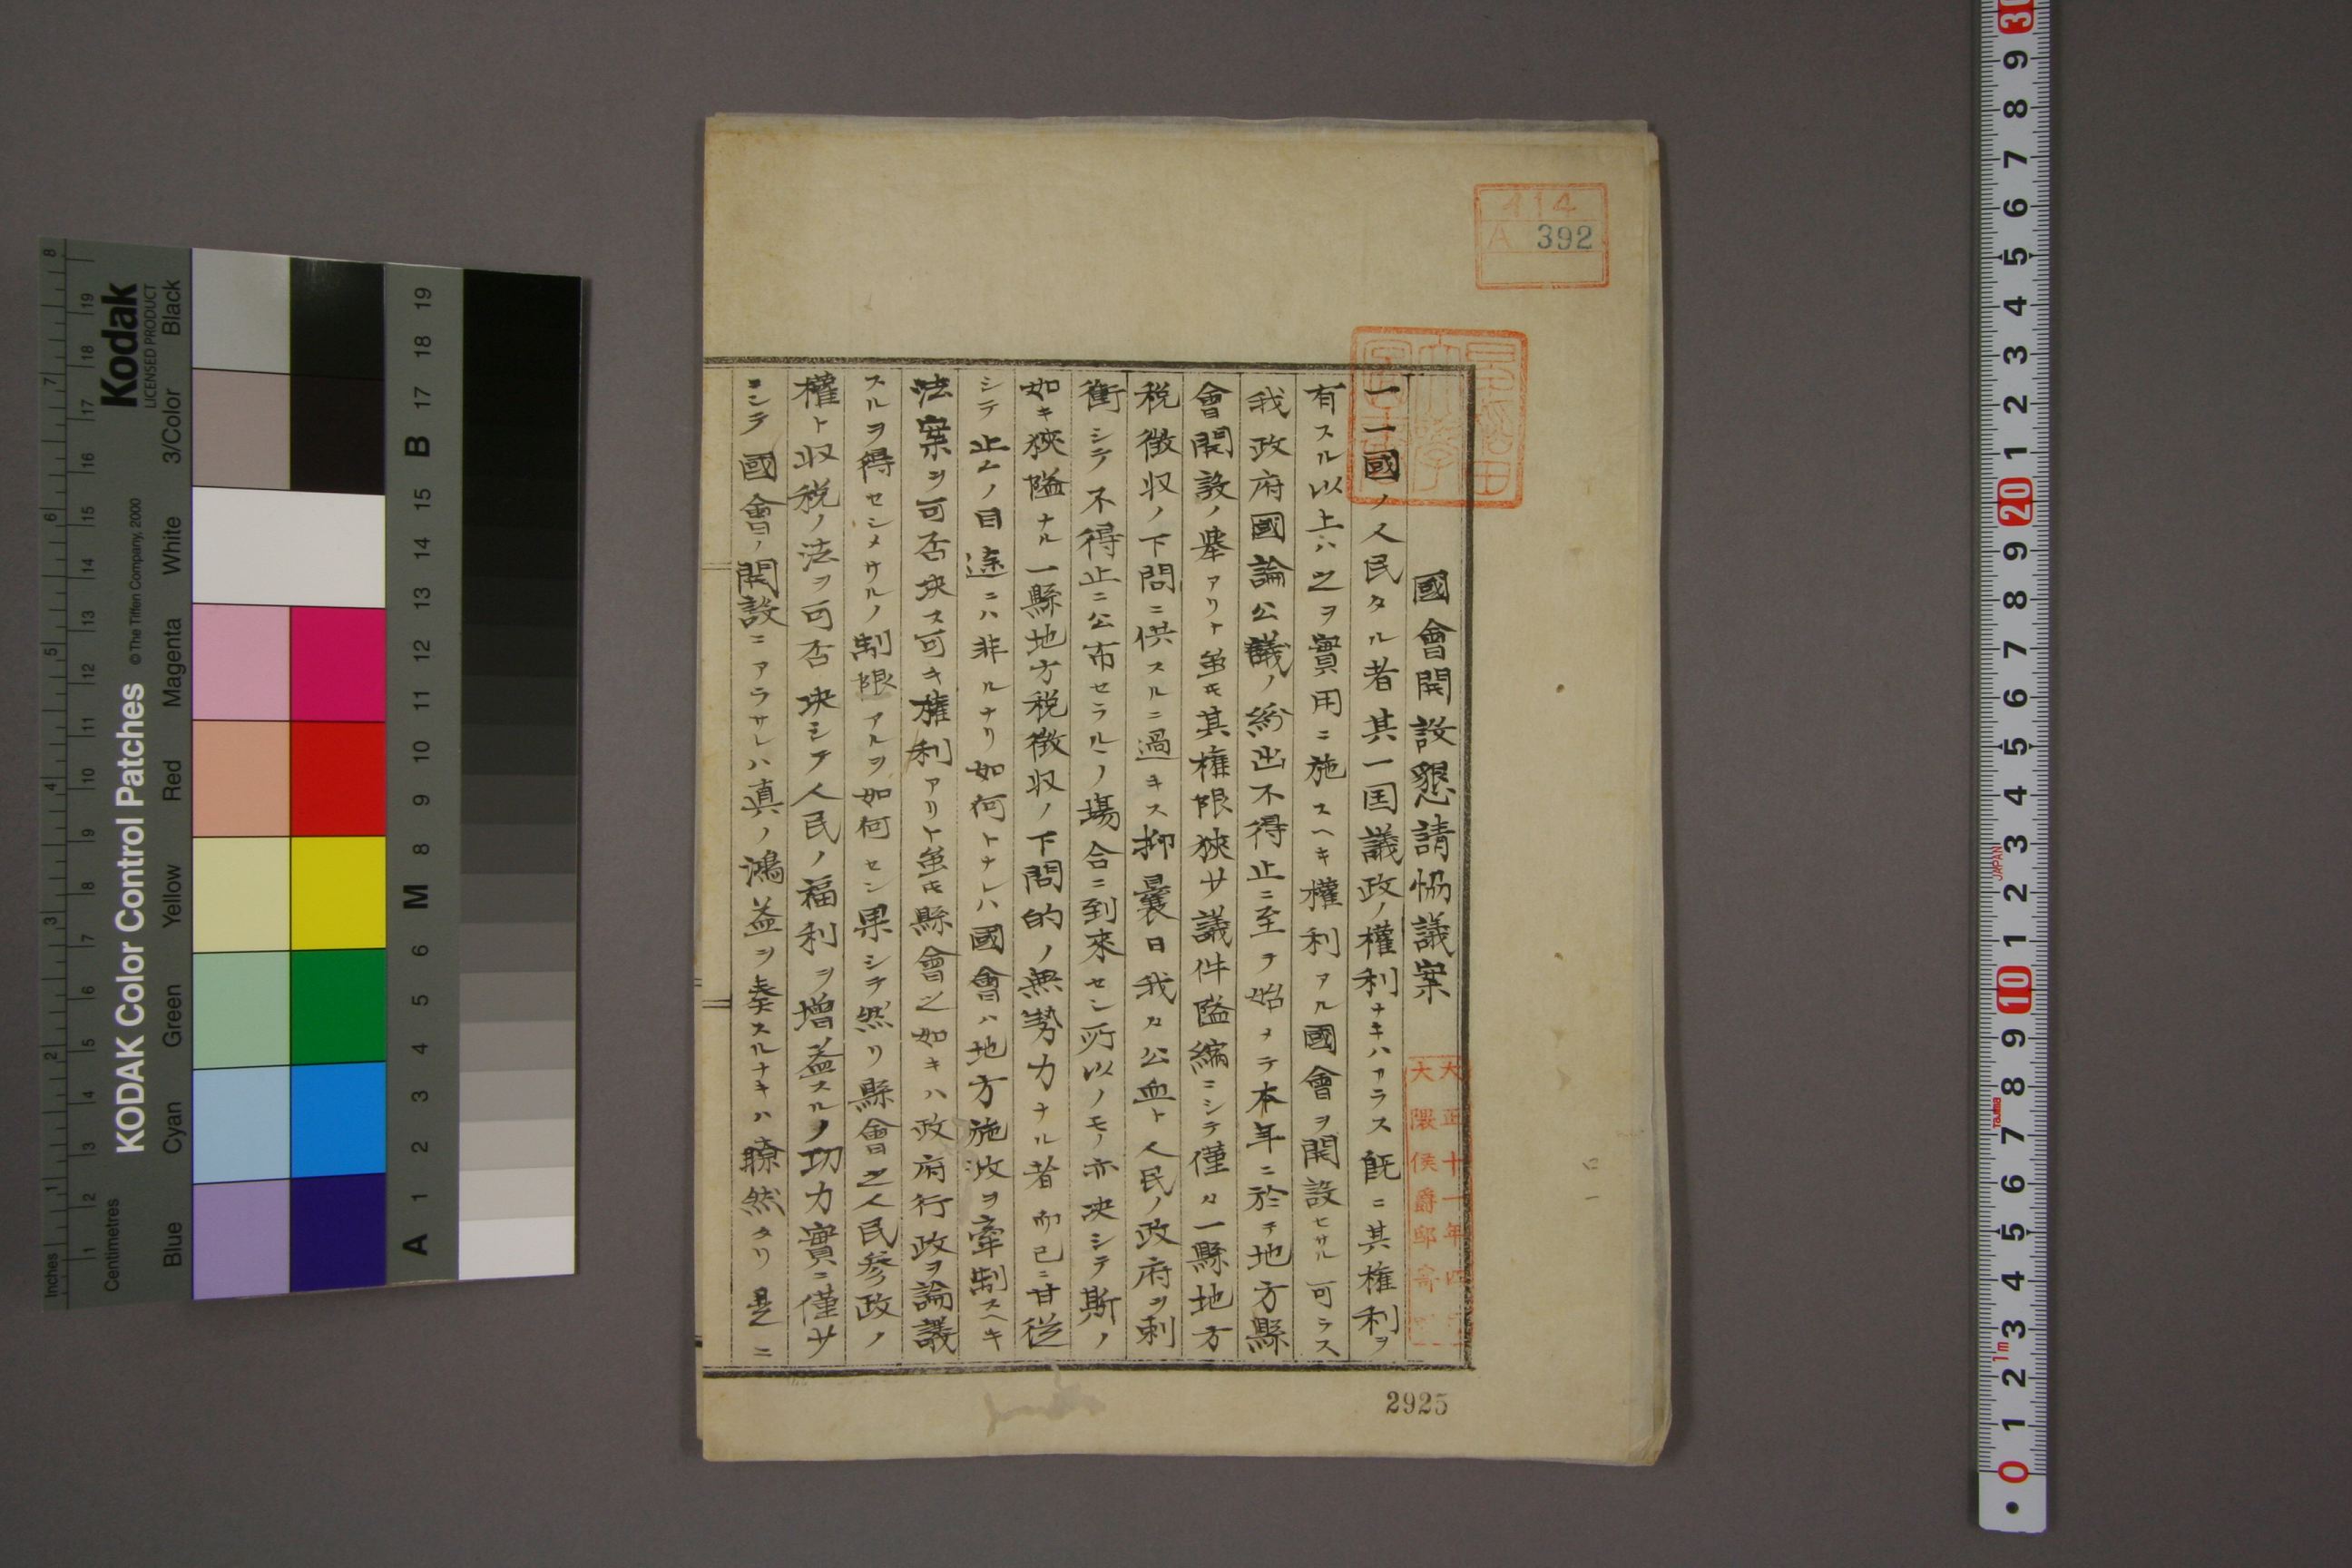 國會開設懇請協議案
一一國ノ人民タル者其一国議政ノ權利ナキハカラス既ニ其権利ヲ
有スル以上ハ之ヲ實用ニ施スヘキ權利アル國會ヲ開設セサル可ラス
我政府國論公議ノ紛出不得止ニ至テ始メテ本年ニ於テ地方縣
會開設ノ挙アリト虽𪜈其権限狹サ議件隘縮ニシテ僅カ一縣地方
税徴収ノ下問ニ供スルニ過キス抑曩日我カ公血ト人民ノ政府ヲ刺
衝シテ不得止ニ公布セラルヽノ場合ニ到來セシ所以ノモノ亦决シテ斯ノ
如キ狹隘ナル一縣地方税徴収ノ下問的ノ無勢力ナル者而已ニ甘従
シテ止ムノ目途ニハ非ルナリ如何トナレハ國會ハ地方施政ヲ牽制スヘキ
法案ヲ可否决ス可キ権利アリト虽𪜈縣會之如キハ政府行政ヲ論議
スルヲ得セシメサルノ制限アルヲ如何セン果シテ然リ縣會之人民参政ノ
權ト収税ノ法ヲ可否决シテ人民ノ福利ヲ増益スルノ功力實ニ僅サ
ニシテ國會ノ開設ニアラサレハ真ノ鴻益ヲ奏スルナキハ瞭然タリ是ニ
大正十一年四
大隈侯爵邸寄
早稻田大學圖書
414
A 392
2925
KODAK Color Control Patches
© The Tiffen Company, 2000
Kodak
LICENSED PRODUCT
Inches
Centimetres
Blue Cyan Green Yellow Red Magenta White 3/Color Black
A 1 2 3 4 5 6 M 8 9 10 11 12 13 14 15 B 17 18 19
JAPAN
Tajima
1m